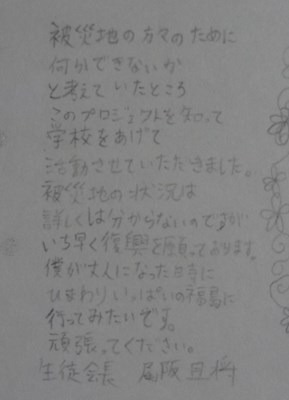 被災地の方々のために
何かできないか
と考えていたところ
このプロジェクトを知って
学校をあげて
活動させていただきました。
被災地の状況は
詳しくは分からないのですが
いち早く復興を願っております。
僕が大人になった時に
ひまわりいっぱいの福島に
行ってみたいです。
頑張ってください。
生徒会長 尾阪 旦将